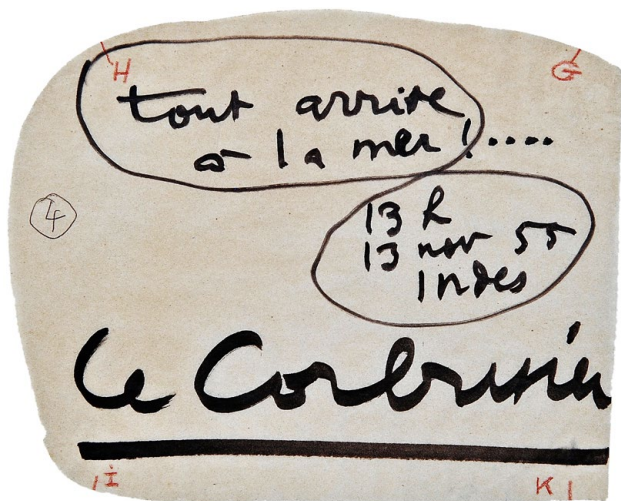 H G
tout arrive
à la mer !....
4
13 h
13 nov 55
Indes
Le Corbusier
I K